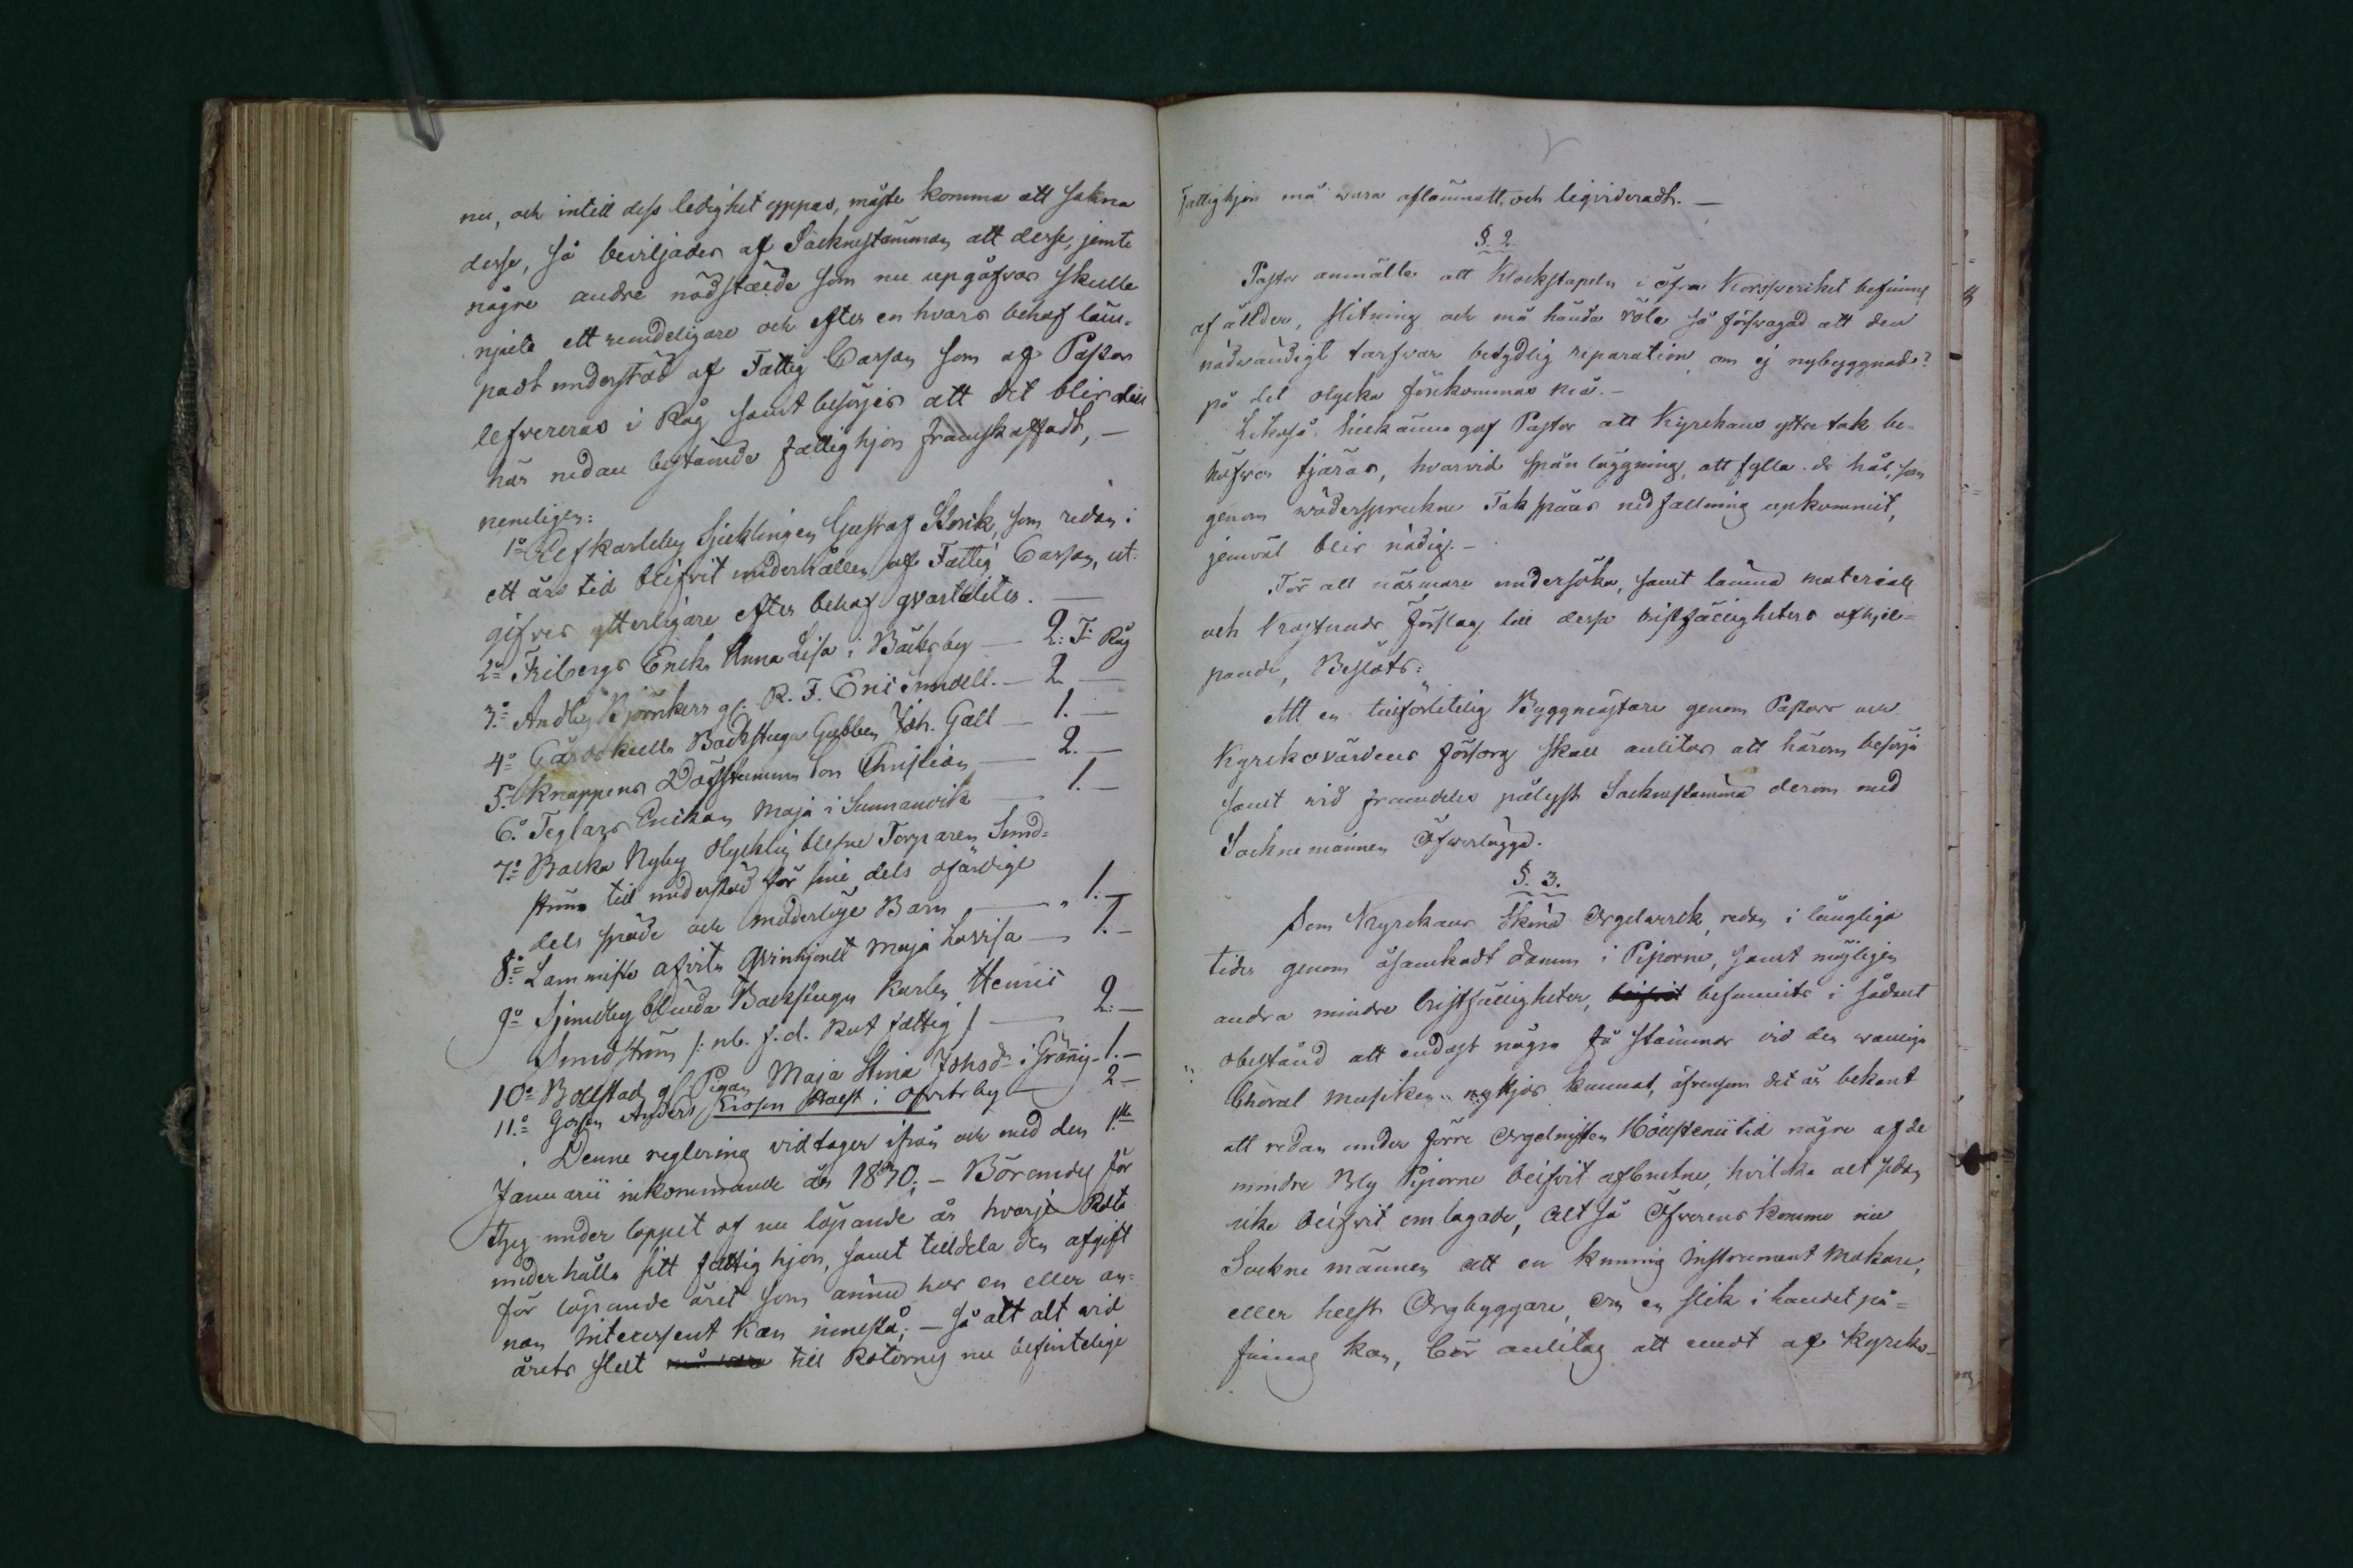 nu, och intill dess ledighet yppas, måste komma att sakna
desse, så beviljades af Sacknestämman att desse, jemte
några andre nödstälde som nu upgåfvos skulle
njuta ett reundeligare och efter en hvars behof läm-
padt understöd af Fattig Cassan som af Pastor
lefvereras i Råg samt besörjes att det blir dem
här nedan bestämde fattighjon framskaffadt, —
nemeligen:
1o Elefkarleby Sjuklingen Gustaf Storik, som redan i
ett års tid blifvit underhållen af Fattig Cassan, ut-
gifves ytterligare efter behof qvartaliter. —
2o Fribergs Encka Anna Lisa i Bäcksby — 2: T: Råg
3o Andby Björnkers gl. R. F. — 2 —
4o Backstugu Gubben Joh. Gall — 1. —
5o Knappens Döfstumma Son Christian — 2. —
6o Teglars Enckan Maja i Sunnanvik — 1. —
7o Backa Nyby Olycklig blefne Torparen Sund-
ström till understöd för sine dels ofärdige
dels späde och moderlöse Barn — 1. —
8o Lammiste afvita Qvinhjonet Maja Lovisa — 1. —
9o blinda Backstugu Karlen Henric
Sundström /: nb. f. d. Rot fattig :/ — 2. —
10o Bolstad gl Pigan Maja Stina Johsdr i Gränig - 1. —
11o Gossen Anders Ersson i Ofverby — 2 —
Denne reglering vidtager ifrån och med den 1ste
Januarii inkommande år 1840; — Börandes för
öfrig under loppet af nu löpande år hvarje Rote
underhålla sitt fattig hjon, samt tilldela den afgift
för löpande året som ännu hos en eller an-
nan Interessent kan innestå; — så att alt vid
årets slut till Roternes nu befintelige
Fattighjon må vara aflämnatt och liqvideradt. —
§. 2.
Pastor anmälte att Klockstapeln i öfra Korssverket befinnes
af ållder, slitning och må hända röta så försvagad att den
nödvändigt tarfvar betydlig reparation, om ej nybyggnad?
på det olycka förekommas må. —
Likaså tillkänna gaf Pastor att Kyrckans yttre tak be-
höfver tjäras, hvarvid spån läggning, att fylla de hål, som
genom väderspruckne Takspåns nedfallning upkommit,
jemväl blir nödig. —
För att närmare undersöka, samt lämna materials
och kostnads förslag till dessa bristfälligheters afhjel-
pande, Beslöts:
Att en tillförlitelig Byggmästare genom Pastors och
Kyrckovärdens försorg skall anlitas att härom besörja
samt vid framdeles pålyst Sacknestämma derom med
Sacknemännen Öfverlägga.
§. 3.
Som Kyrckans sköna Orgelverck, redan i långliga
tider genom åsamkadt damm i Piporne, samt möjligen
andra mindre bristfälligheter, befunnits i sådant
obestånd att endast några få stämmor vid den vanliga
Choral Musiken nyttjas kunnat, äfvensom det är bekant
att redan under förre Orgelnisten Höijstenii tid några af de
mindre Bly Piporne blifvit afbrutne, hvilka alt sedan
icke blifvit omlagade, Alt så Öfverens komme nu
Sackne männen att en kunnig Instrument Makare,
eller helst Orgbyggare, om en slik i landet på-
finnas kan, bör anlitas att emot af Kyrcko-